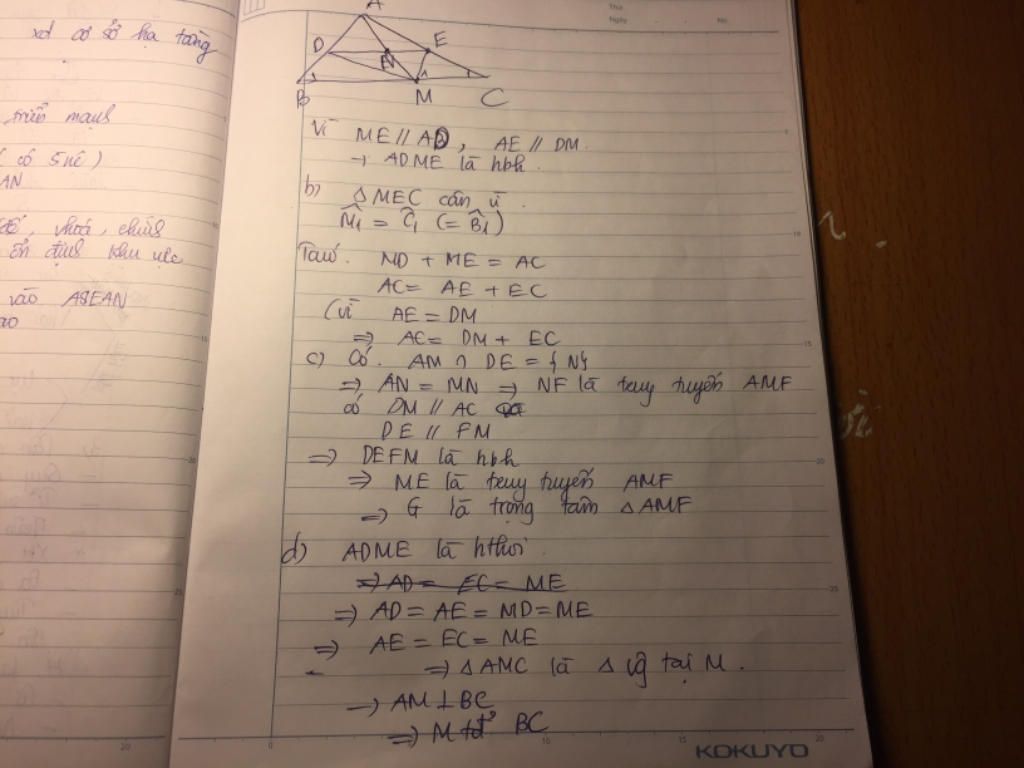 xd cơ sở hạ tầng
triển mạnh
( có 5 nc )
AN
đó, khoá, chính
ổn định khu vực
vào ASEAN
ao
Thứ
Ngày No.
A
D E
N
B M C
Vì ME // AD, AE // DM.
→ ADME là hbh.
b) Δ MEC cân vì
M̂1 = Ĉ1 (= B̂1)
Ta có. MD + ME = AC
AC = AE + EC
(vì AE = DM
⇒ AC = DM + EC
c) Có. AM ∩ DE = {N}
⇒ AN = MN ⇒ NF là trung tuyến AMF
có DM // AC
DE // FM
⇒ DEFM là hbh
⇒ ME là trung tuyến AMF
⇒ G là trọng tâm Δ AMF
d) ADME là hthoi.
⇒ AD = EC = ME
⇒ AD = AE = MD = ME
⇒ AE = EC = ME
⇒ Δ AMC là Δ vg tại M.
→ AM ⊥ BC
⇒ M tđ BC
KOKUYO